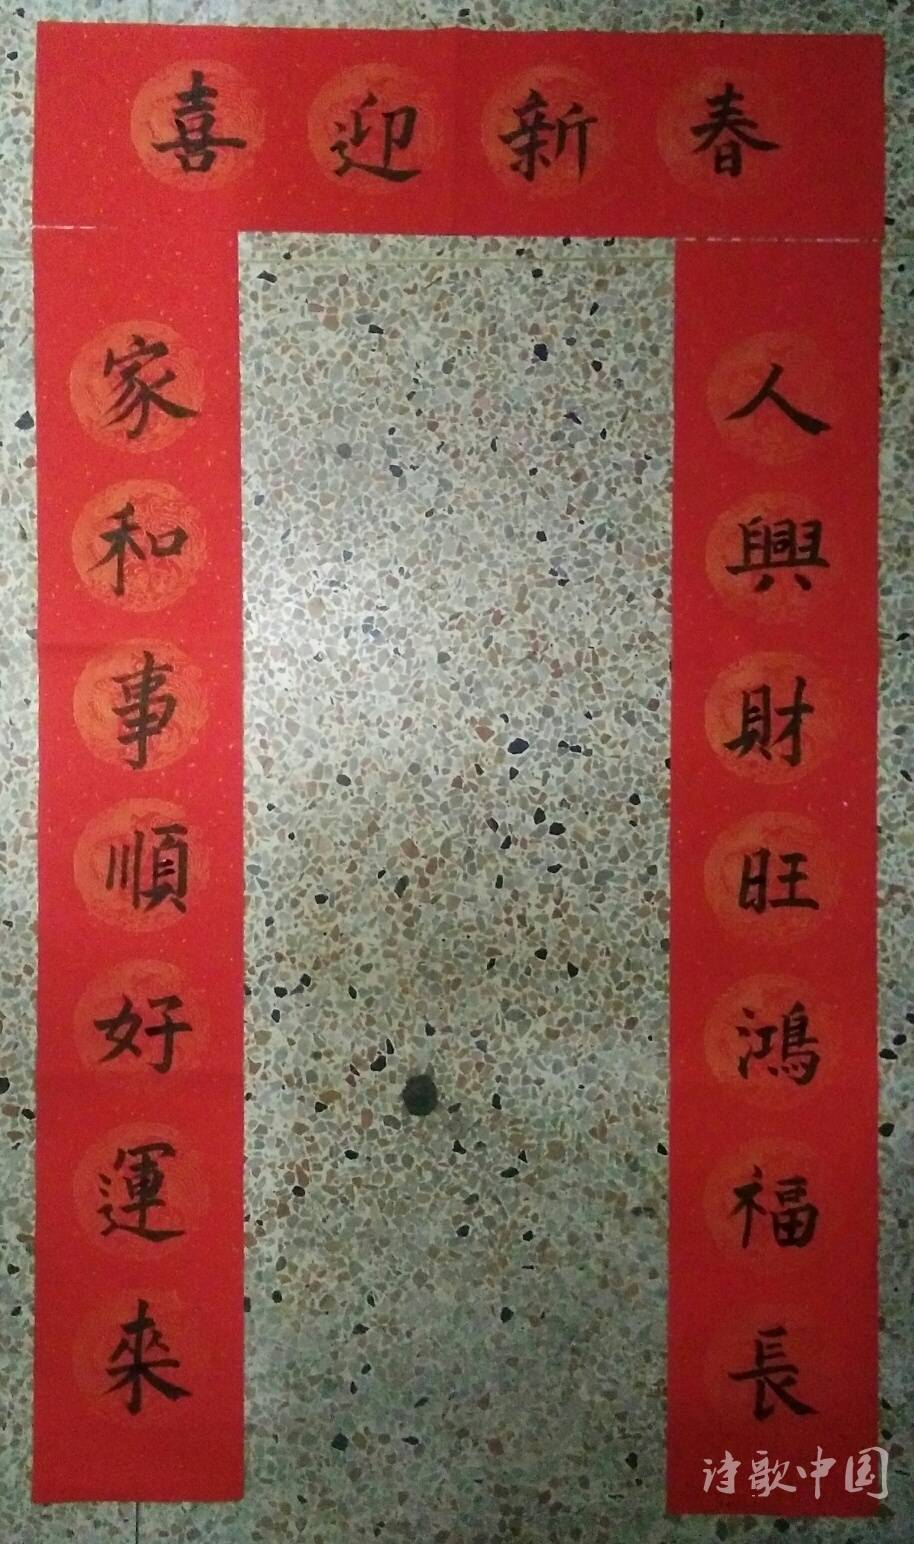 喜迎新春
家和事順好運來
人興財旺鴻福長
诗歌中国